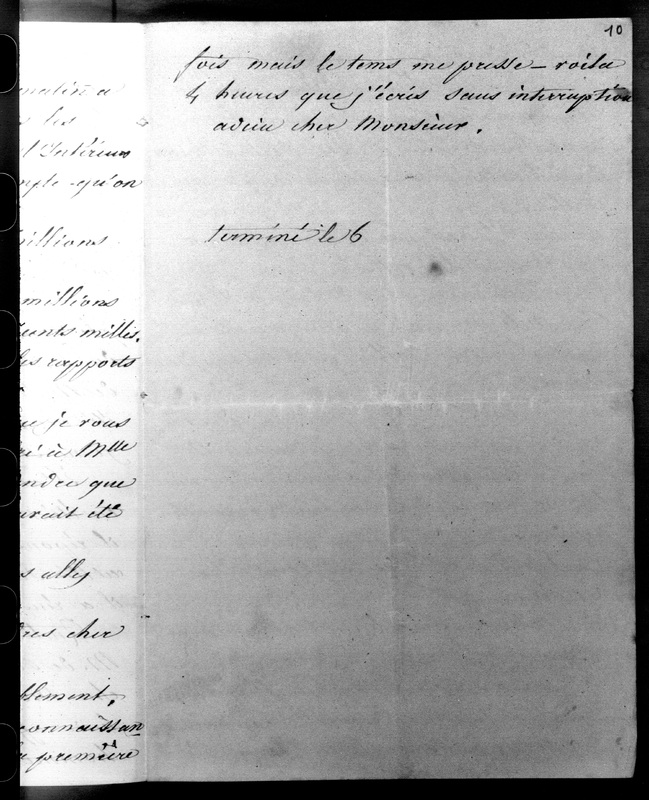 10
fois mais le tems me presse – voila
4 heures que j'écris sans interruption
adieu cher Monsieur.
terminé le 6
matin a
les
Intérieur
qu'on
millions
millions
cents millis.
les rapports
je vous
à Mlle
que
avait été
allez
cher
blement,
connaissan
première